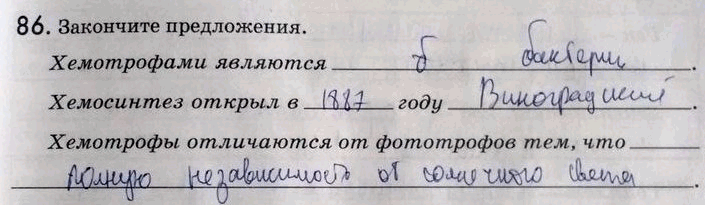 86. Закончите предложения.
Хемотрофами являются б бактерии.
Хемосинтез открыл в 1887 году Виноградский.
Хемотрофы отличаются от фототрофов тем, что
полную независимость от солнечного света.